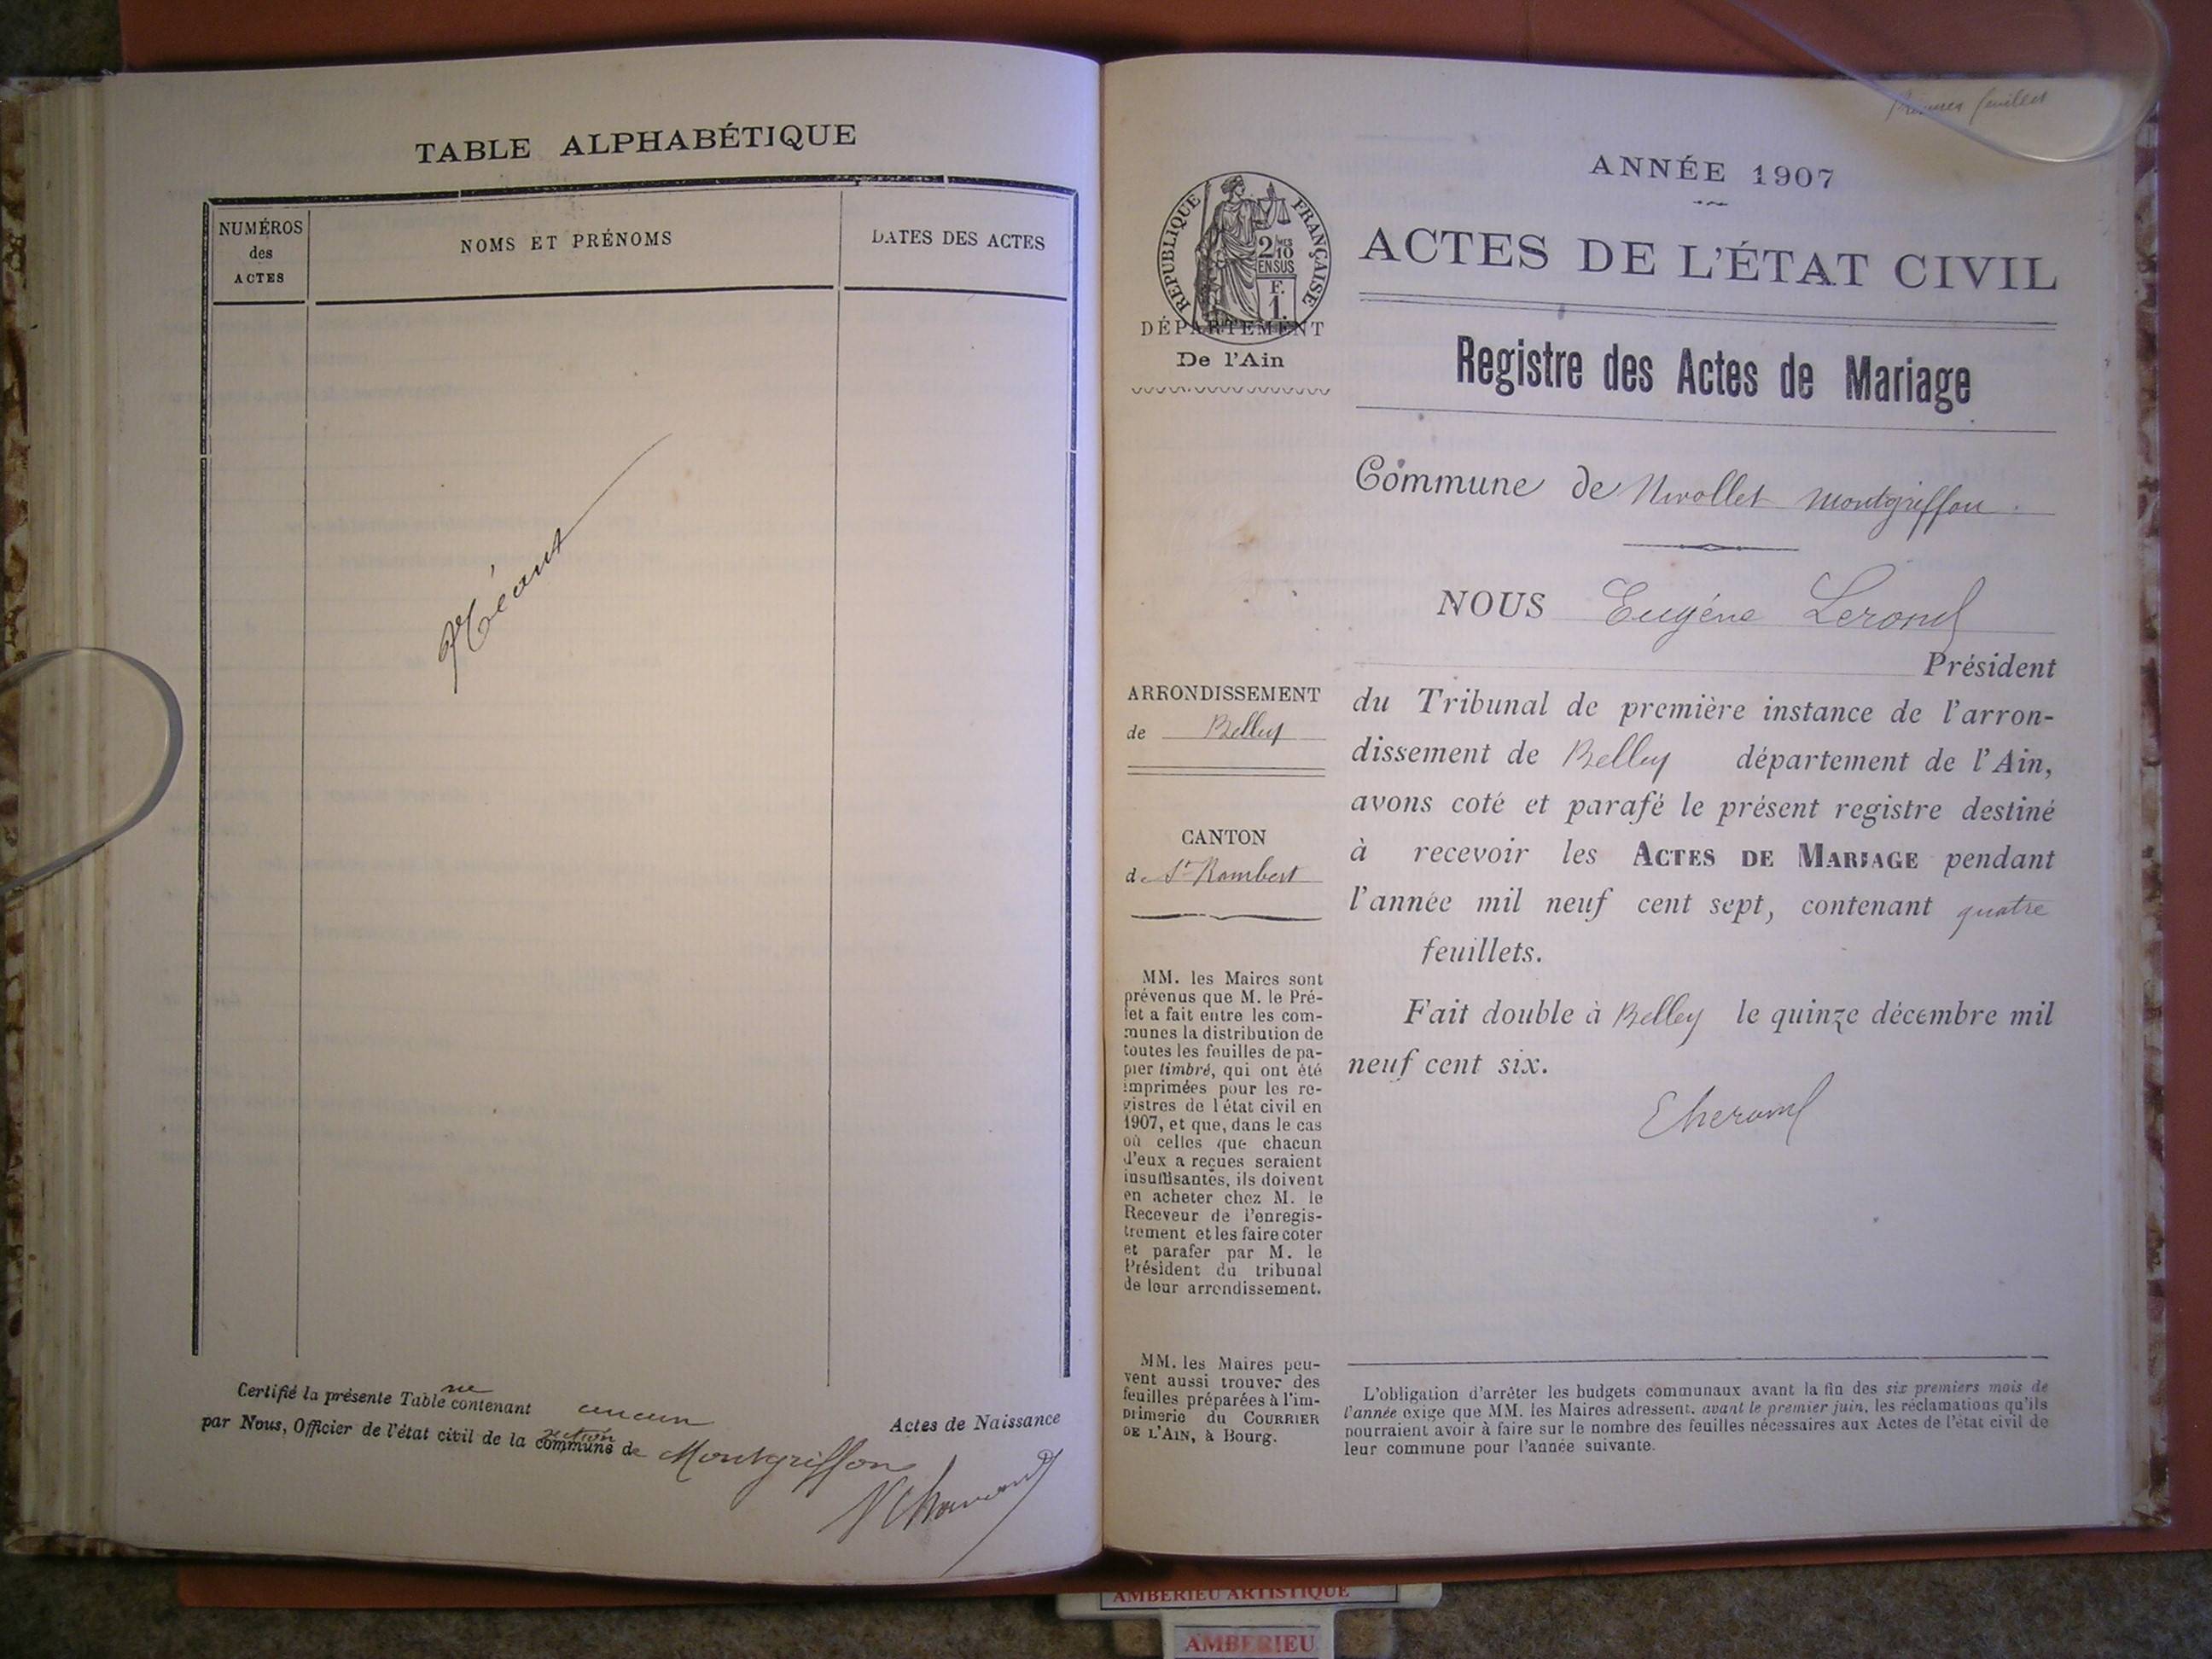 TABLE ALPHABÉTIQUE
NUMÉROS
des
ACTES
NOMS ET PRÉNOMS
DATES DES ACTES
Néant
Certifié la présente Table ne contenant aucun Actes de Naissance
par Nous, Officier de l'état civil de la commune section de Montgriffon
Premier feuillet
ANNÉE 1907
ACTES DE L'ÉTAT CIVIL
Registre des Actes de Mariage
RÉPUBLIQUE FRANÇAISE
2/MES
10
EN SUS
F.
1.
DÉPARTEMENT
De l'Ain
Commune de Nivollet Montgriffon.
NOUS Eugène Lerond
Président
du Tribunal de première instance de l'arron-
dissement de Belley département de l'Ain,
avons coté et parafé le présent registre destiné
à recevoir les ACTES DE MARIAGE pendant
l'année mil neuf cent sept, contenant quatre
feuillets.
Fait double à Belley le quinze décembre mil
neuf cent six.
ELerond
ARRONDISSEMENT
de Belley
CANTON
de St Rambert
MM. les Maires sont
prévenus que M. le Pré-
fet a fait entre les com-
munes la distribution de
toutes les feuilles de pa-
pier timbré, qui ont été
imprimées pour les re-
gistres de l'état civil en
1907, et que, dans le cas
où celles que chacun
d'eux a reçues seraient
insuffisantes, ils doivent
en acheter chez M. le
Receveur de l'enregis-
trement et les faire coter
et parafer par M. le
Président du tribunal
de leur arrondissement.
MM. les Maires peu-
vent aussi trouver des
feuilles préparées à l'im-
primerie du COURRIER
DE L'AIN, à Bourg.
L'obligation d'arrêter les budgets communaux avant la fin des six premiers mois de
l'année exige que MM. les Maires adressent, avant le premier juin, les réclamations qu'ils
pourraient avoir à faire sur le nombre des feuilles nécessaires aux Actes de l'état civil de
leur commune pour l'année suivante.
AMBERIEU ARTISTIQUE
AMBERIEU